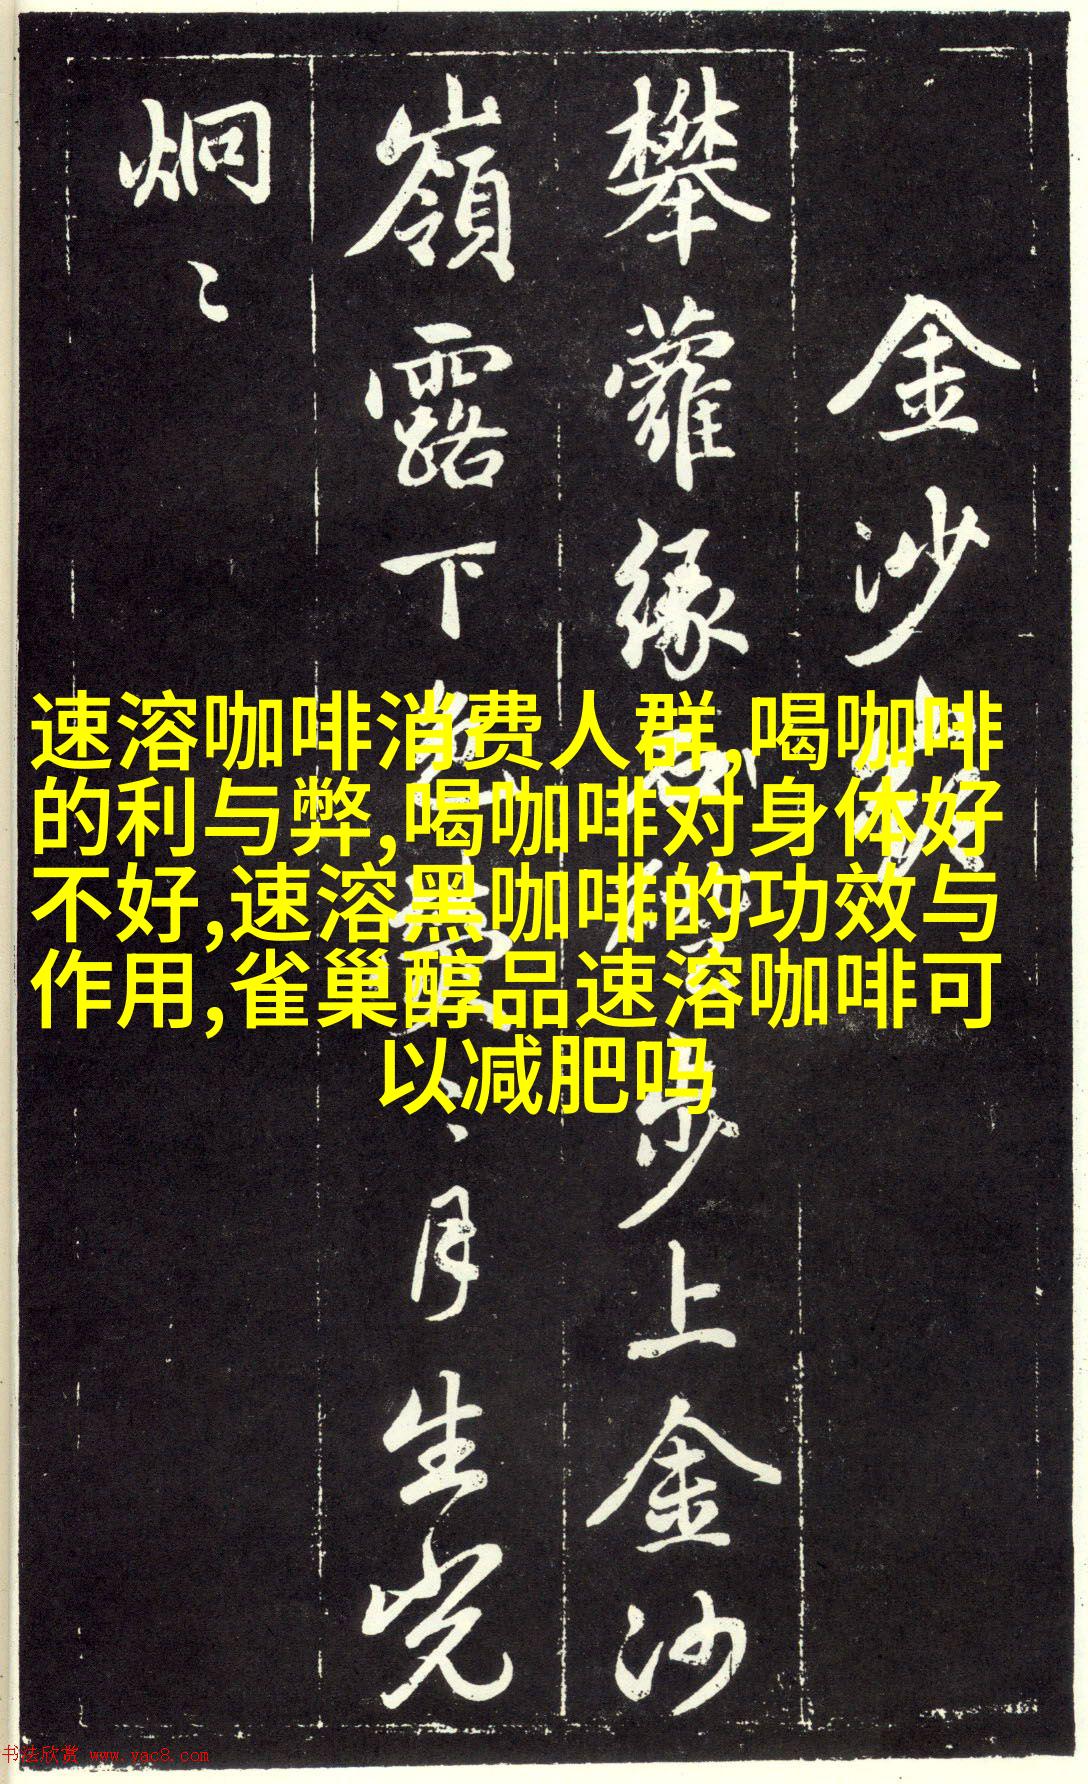 金沙
攀蘿緣 步上金沙
嶺露下 月生光
炯〻
速溶咖啡消费人群,喝咖啡
的利与弊,喝咖啡对身体好
不好,速溶黑咖啡的功效与
作用,雀巢醇品速溶咖啡可
以减肥吗
书法欣赏 www.yac8.com